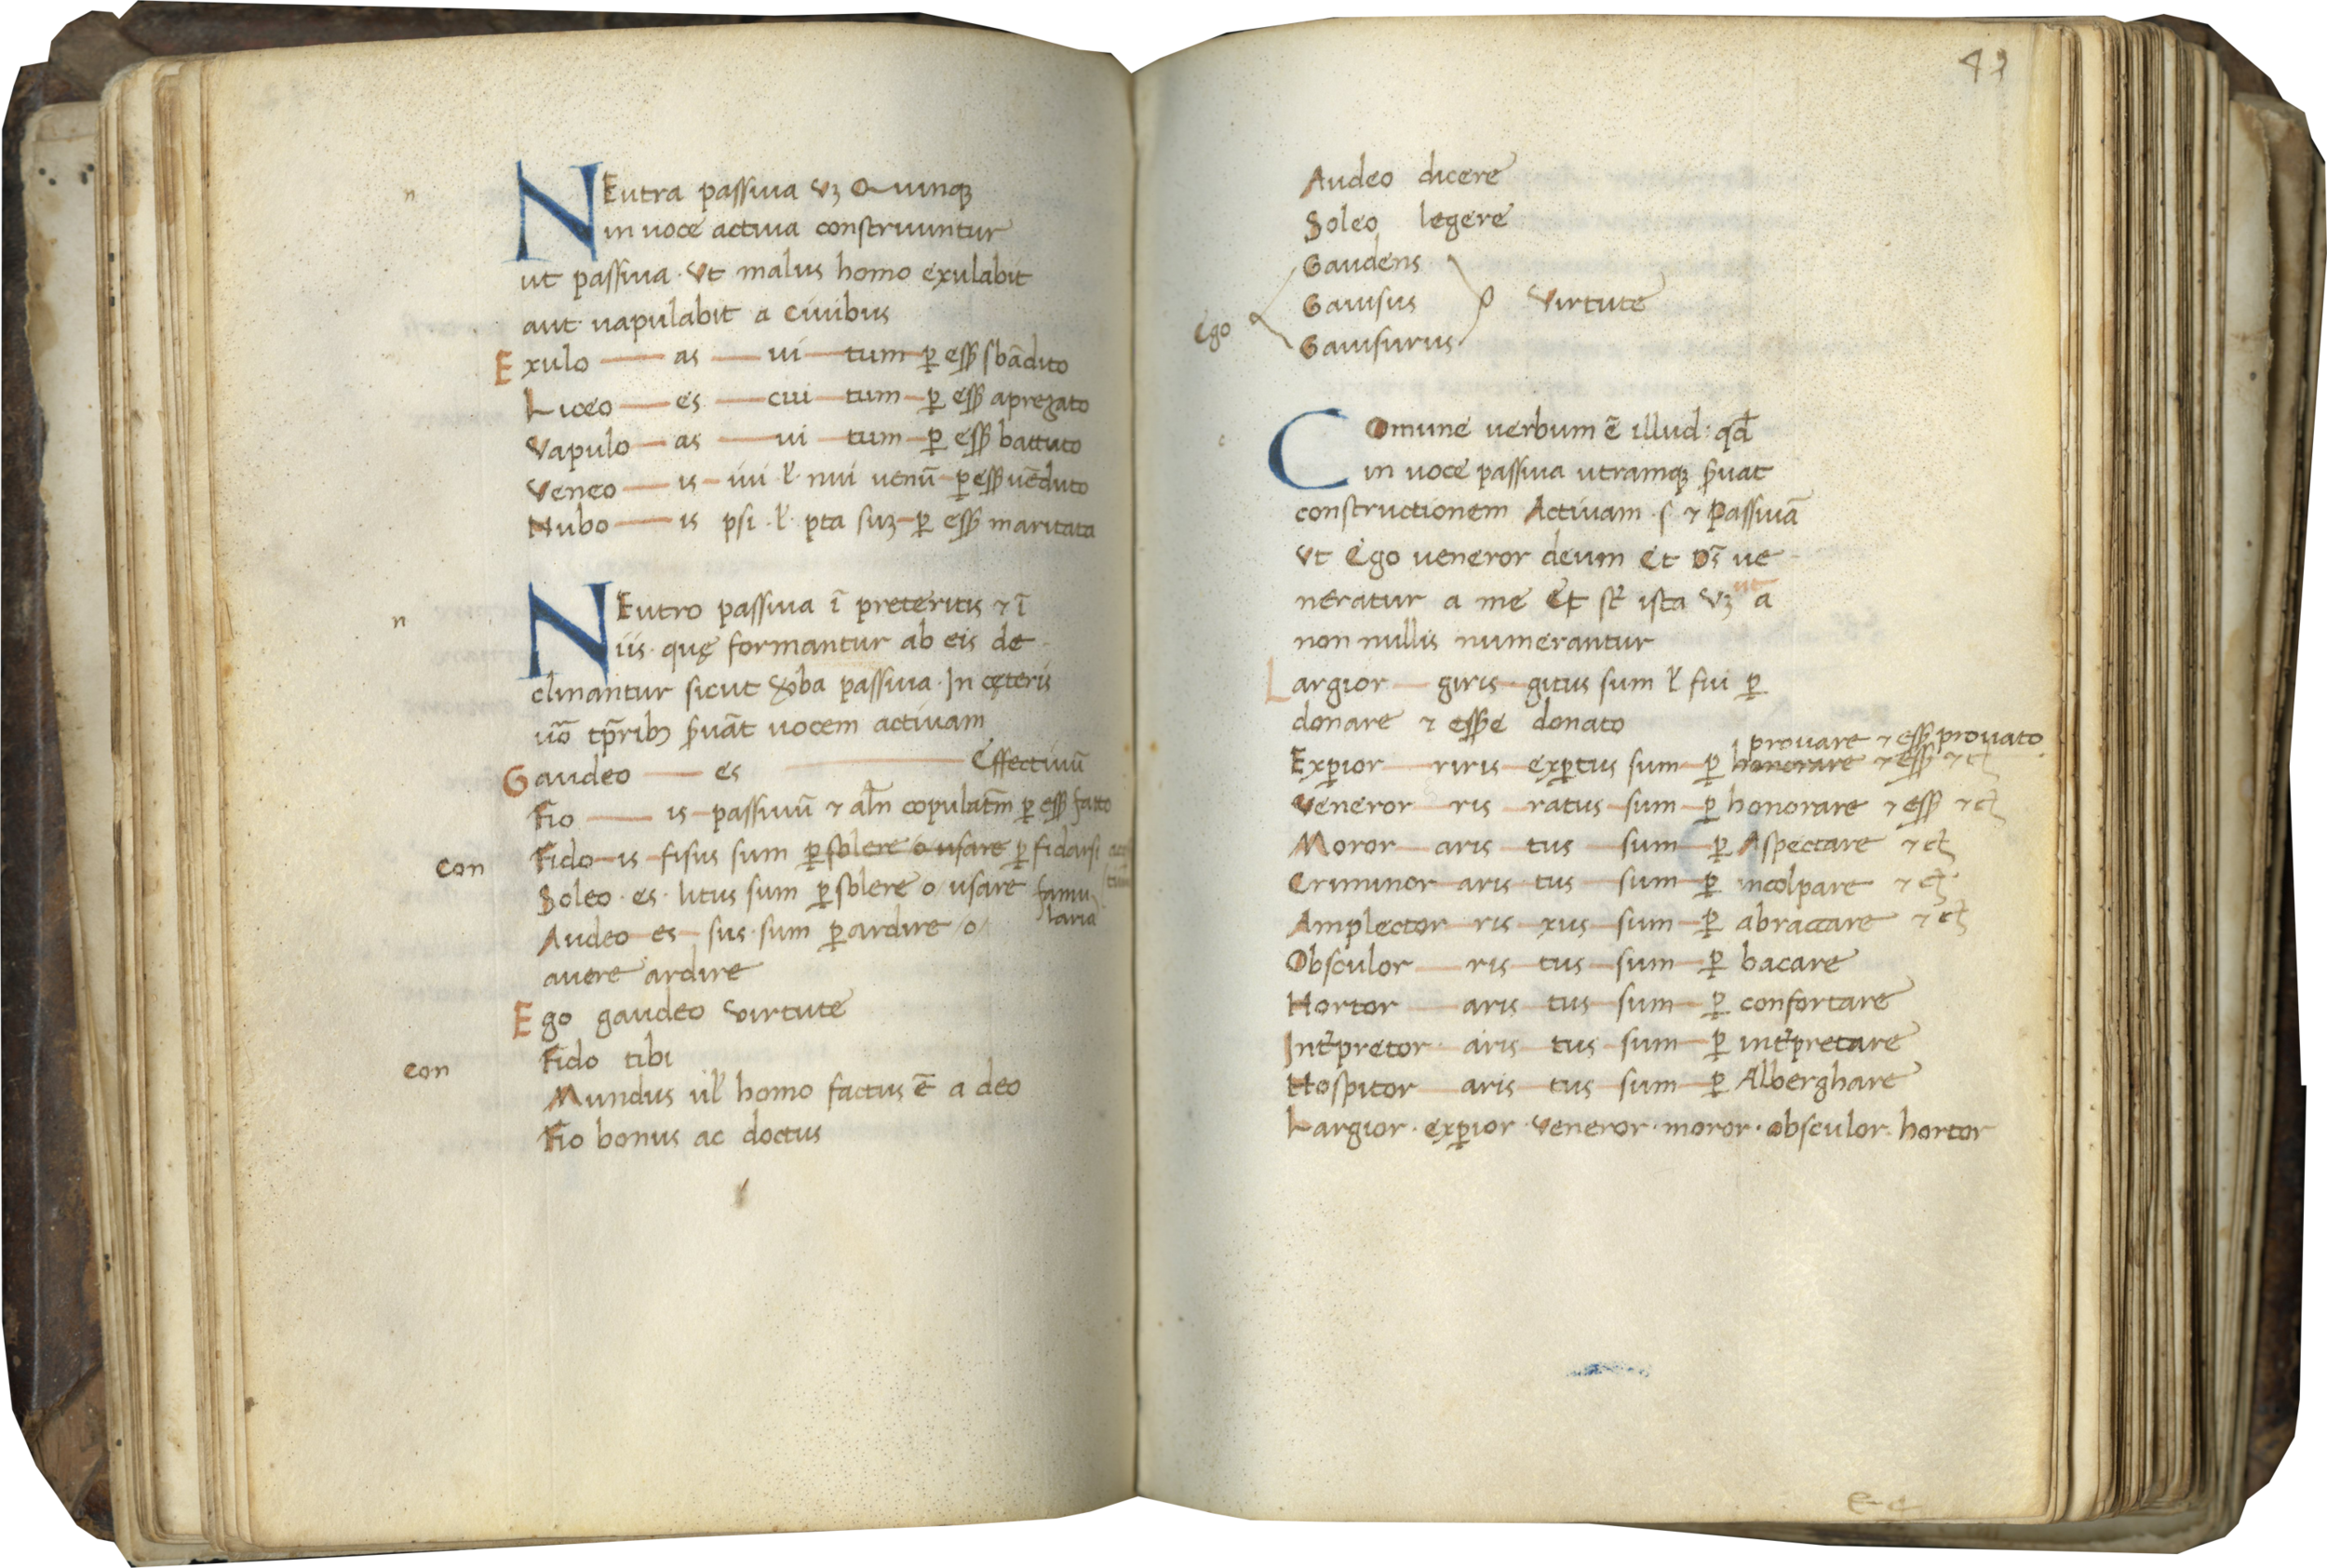 n
NEutra passiua vꝫ Quinqꝫ
in uoce actiua construuntur
ut passiua · Vt malus homo exulabit
aut uapulabit a Ciuibus
Exulo — as — ui — tum — ꝑ essꝫ sbādito
Liceo — es — cui — tum — ꝑ essꝫ aprezato
Vapulo — as — ui — tum — ꝑ essꝫ battuto
Veneo — is — iui · ł · niui uenū — ꝑ essꝫ uēduto
Nubo — is psi · ł · pta suꝫ — ꝑ essꝫ maritata
n
NEutro passiua ī preteritis ⁊ ī
iis · quę formantur ab eis de
clinantur sicut v̄ba passiua · In cęteris
uō tp̄ribꝫ s̄uāt uocem actiuam
Gaudeo — es — Effectiuū
Fio — is — passiuū ⁊ al̄n copulatm̄ ꝑ essꝫ fatto
con Fido — is — fisus sum ꝑ solere o usare ꝑ fidarsi
Soleo · es · litus sum ꝑ solere o usare famu
laria
Audeo — es — sus · sum ꝑ ardire /o/
auere ardire
Ego gaudeo virtute
con Fido tibi
Mundus ul̄ homo factus ē a deo
Fio bonus ac doctus
49
Audeo dicere
Soleo legere
Gaudens
Ego Gauisus virtute
Gauisurus
c
Comune uerbum ē illud : qd̄
in uoce passiua utramqꝫ s̄uat
constructionem Actiuam · s · ⁊ Passiuā
Vt Ego ueneror deum Et Ds̄ ue
neratur a me Et st̄ ista vꝫ ut a
non nullis numerantur
Largior — giris · gitus sum ł fui ꝑ
donare ⁊ essꝫe donato
prouare ⁊ essꝫ prouato
Exꝑior — riris — exꝑtus sum — ꝑ honorare ⁊ essꝫ ⁊ cꝫ
Veneror — ris — ratus — sum — ꝑ honorare ⁊ essꝫ ⁊ cꝫ
Moror — aris — tus — sum — ꝑ Aspectare ⁊ cꝫ
Criminor — aris — tus — sum — ꝑ incolpare ⁊ cꝫ
Amplector — ris — xus — sum — ꝑ abracciare ⁊ cꝫ
Obsculor — ris — tus — sum — ꝑ bacare
Hortor — aris — tus — sum — ꝑ confortare
Int̄pretor — aris — tus — sum — ꝑ int̄pretare
Hospitor — aris — tus — sum — ꝑ Alberghare
Largior · exꝑior · veneror · moror · obsculor · hortor